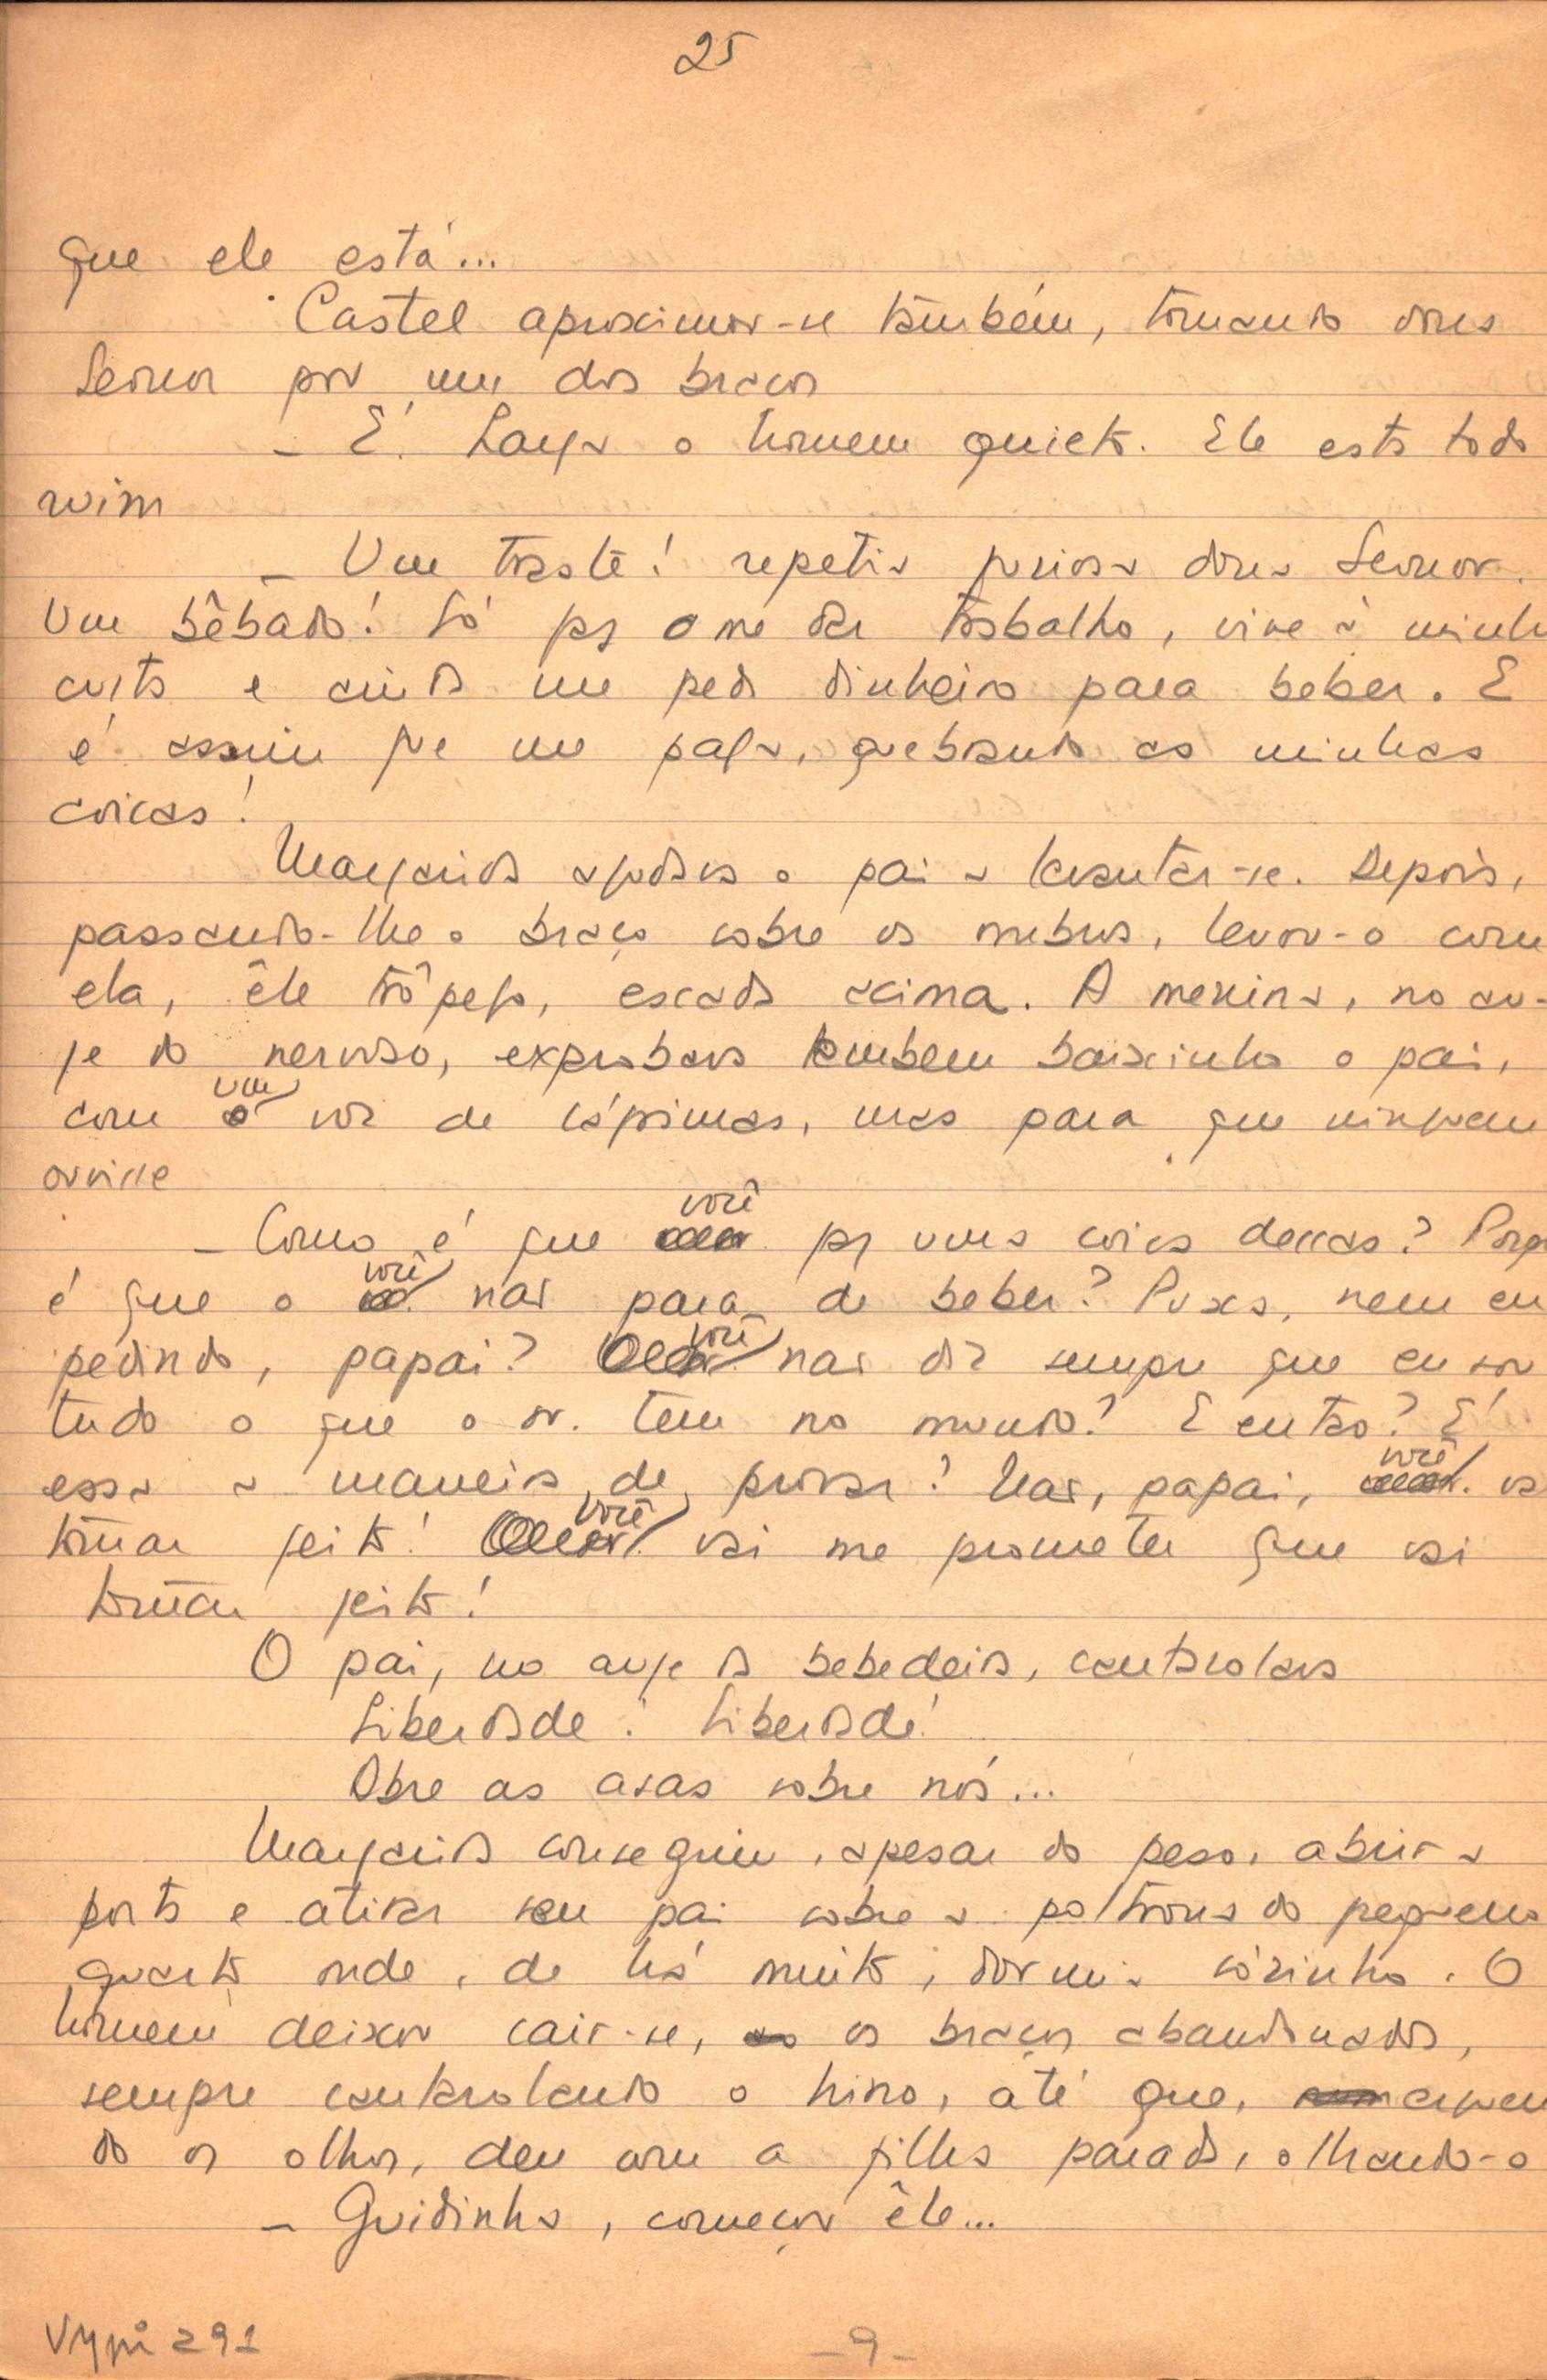 25
que ele está...
Castel aproximou-se também, tomando dona
Leonor por um dos braços
- É. Larga o homem quieto. Ele está todo
ruim
- Um traste! repetia furiosa dona Leonor.
Um bêbado! Só faz me dar trabalho, vive à minha
custa e ainda me pede dinheiro para beber. E
é assim que me paga, quebrando as minhas
coisas!
Margarida ajudava o pai a levantar-se. Depois,
passando-lhe o braço sobre os ombros, levou-o com
ela, êle trôpego, escada acima. A menina, no au-
ge do nervoso, exprobava também baixinho o pai,
com uma voz de lágrimas, mas para que ninguem
ouvisse
- Como é que você faz uma coisa dessas? Porque
é que o você não para de beber? Puxa, nem eu
pedindo, papai? você não diz sempre que eu sou
tudo o que o sr. tem no mundo? E então? É
essa a maneira de provar? Não, papai, você vai
tomar jeito! você vai me prometer que vai
tomar jeito!
O pai, no auge da bebedeira, cantarolava
Liberdade! Liberdade!
Abre as asas sobre nós...
Margarida conseguiu, apesar do peso, abrir a
porta e atirar seu pai sobre a poltrona do pequeno
quarto onde, de há muito, dormia sòzinho. O
homem deixou cair-se, os braços abandonados,
sempre cantarolando o hino, até que, erguen
do os olhos, deu com a filha parada, olhando-o
- Guidinha, começou êle...
291
- 9 -